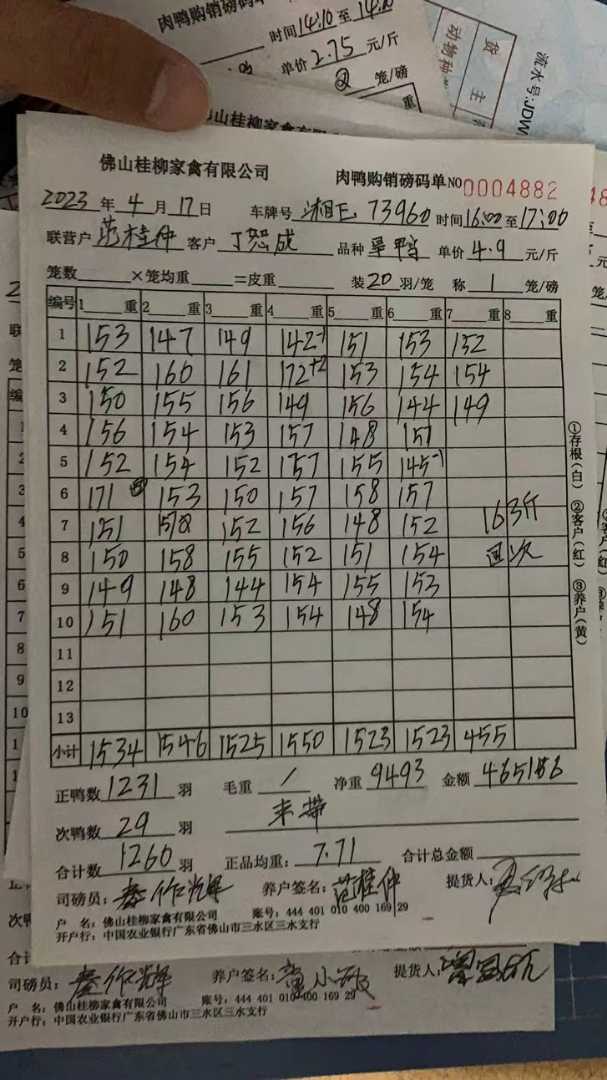 肉鸭购销磅码单
时间14:10至14:10
单价2.75元/斤
笼/磅
重
货主
动物种
流水号:JDW
佛山桂柳家禽有限公司
佛山桂柳家禽有限公司 肉鸭购销磅码单NO0004882
2023年4月17日 车牌号湘E73960时间16:00至17:00
联营户范桂仲客户丁恕成 品种 单价4.9元/斤
笼数×笼均重=皮重 装20羽/笼 称1笼/磅
编号 1重 2重 3重 4重 5重 6重 7重 8重
1 153 147 149 142-1 151 153 152
2 152 160 161 172+2 153 154 154
3 150 155 156 149 156 144 149
4 156 154 153 157 148 151
5 152 154 152 157 155 145-1
6 171 153 150 157 158 157
7 151 158 152 156 148 152 163斤
8 150 158 155 152 151 154 次
9 149 148 144 154 155 153
10 151 160 153 154 148 154
11
12
13
小计 1534 1546 1525 1550 1523 1523 455
正鸭数1231羽 毛重/ 净重9493 金额
次鸭数29羽
合计数1260羽 正品均重:7.71 合计总金额
司磅员:秦作辉 养户签名:范桂仲 提货人:
户 名:佛山桂柳家禽有限公司 账号:444 401 010 400 169 29
开户行:中国农业银行广东省佛山市三水区三水支行
①存根(白) ②客户(红) ③养户(黄)
司磅员:秦作辉 养户签名:黄小敏 提货人:
户 名:佛山桂柳家禽有限公司 账号:444 401 010 400 169 29
开户行:中国农业银行广东省佛山市三水区三水支行